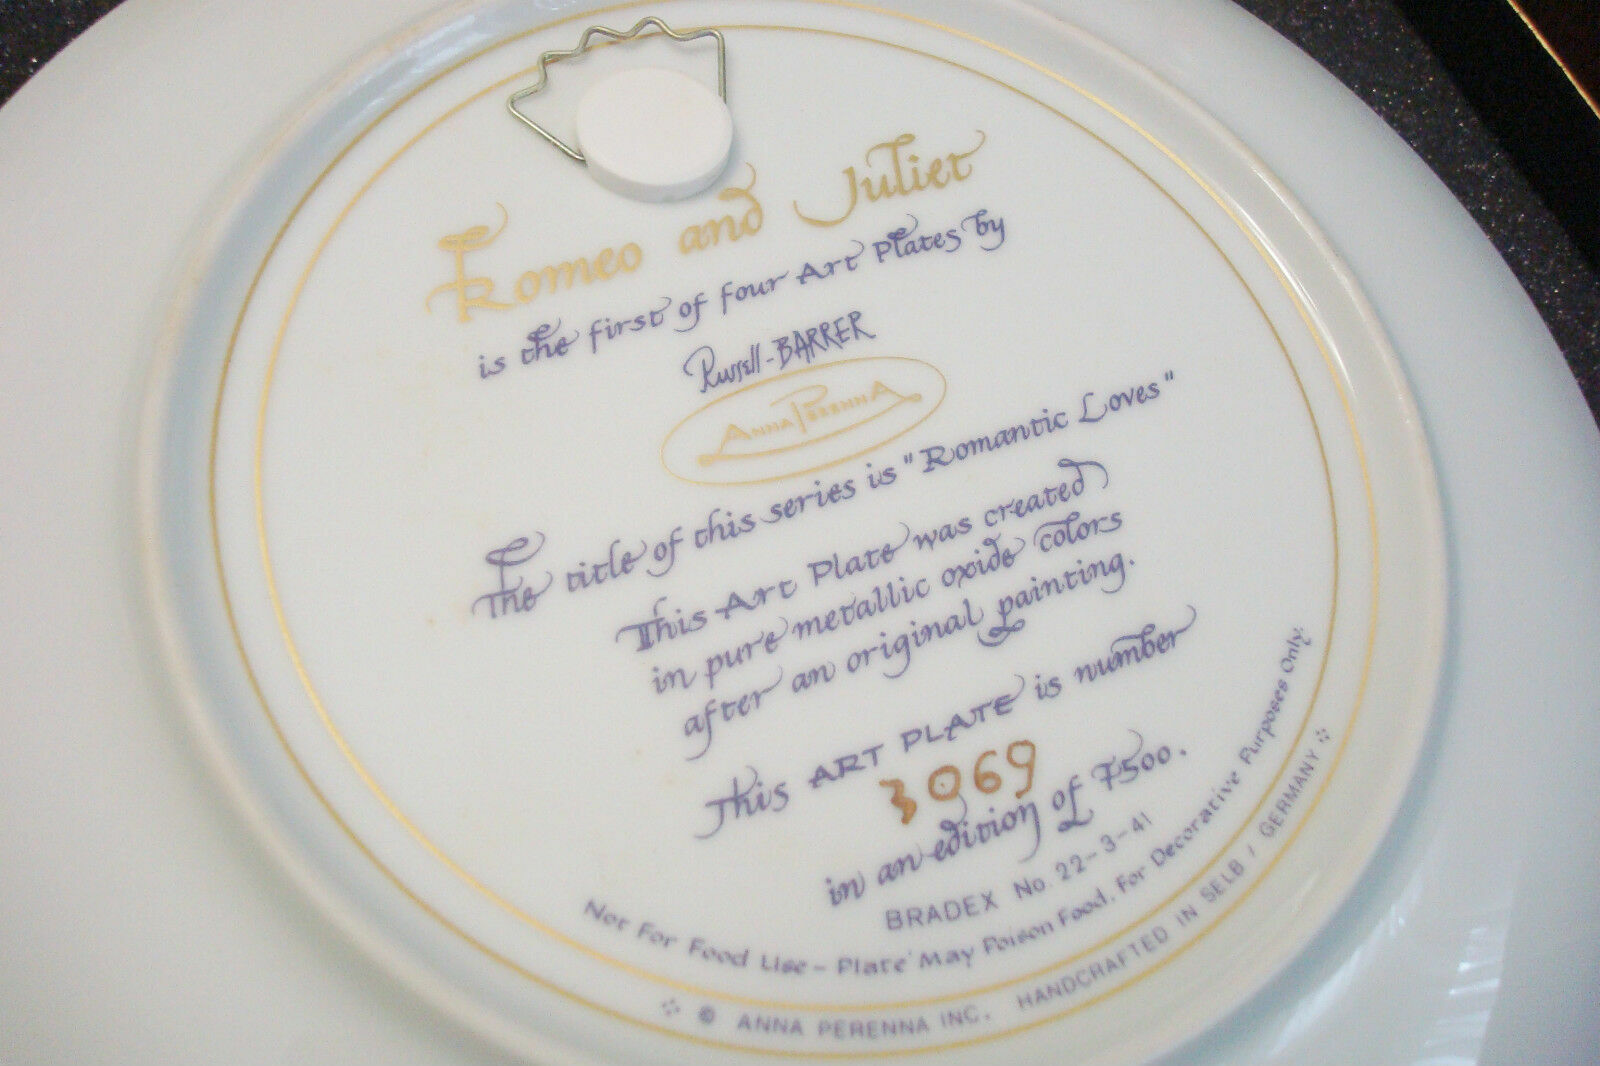 Romeo and Juliet
is the first of four Art Plates by
Russell-BARRER
ANNA PERENNA
The title of this series is "Romantic Loves"
This Art Plate was created
in pure metallic oxide colors
after an original painting.
This ART PLATE is number
3069
in an edition of 7500.
BRADEX No. 22-3-41
Not For Food Use - Plate May Poison Food. For Decorative Purposes Only.
© ANNA PERENNA INC. HANDCRAFTED IN SELB / GERMANY